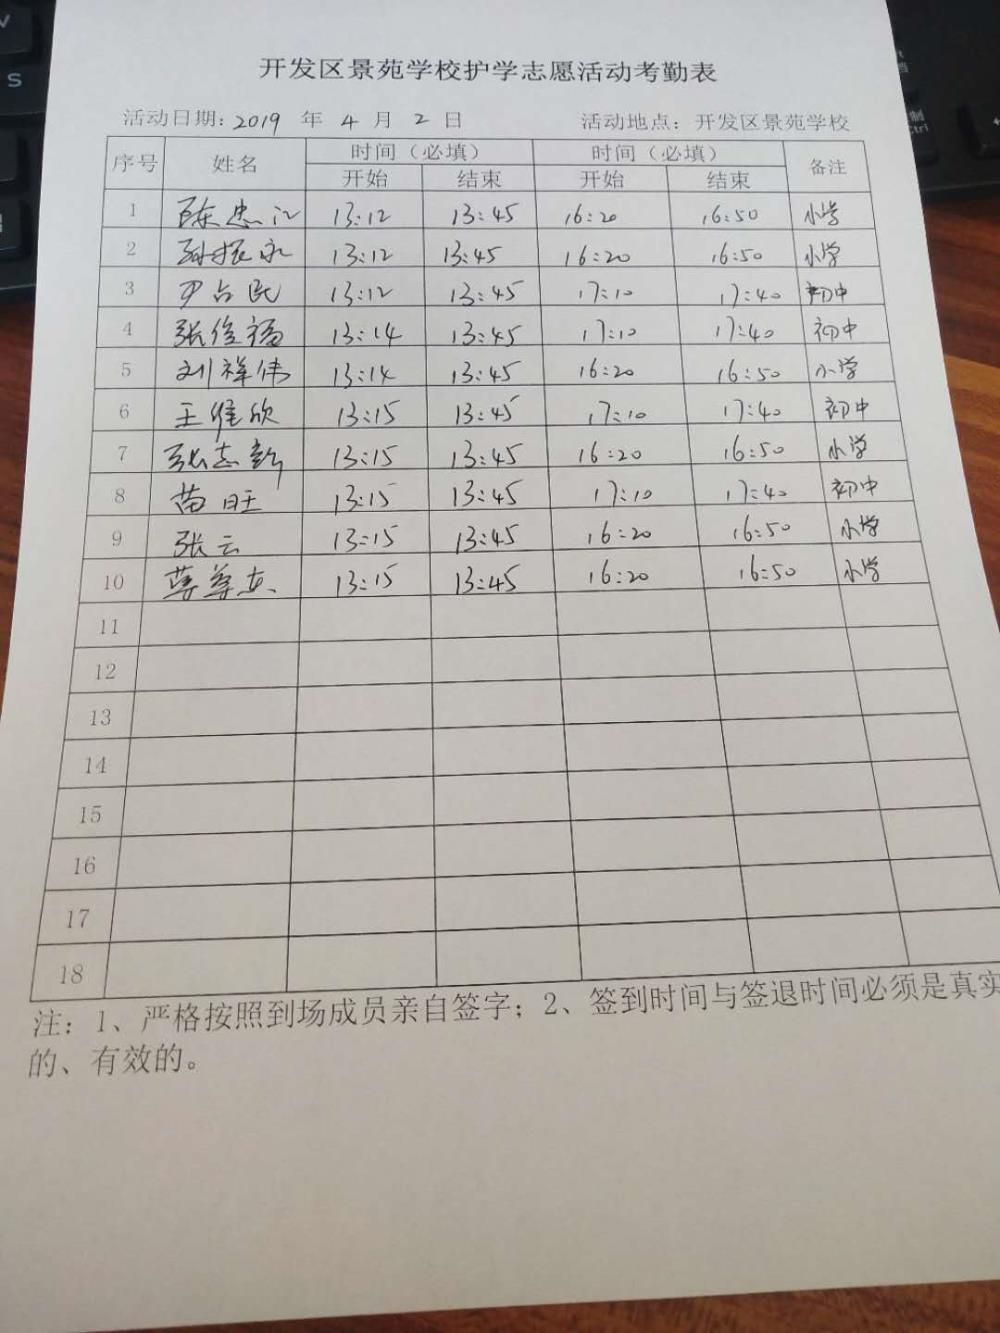 开发区景苑学校护学志愿活动考勤表
活动日期: 2019 年 4 月 2 日 活动地点: 开发区景苑学校
序号 姓名 时间（必填） 时间（必填） 备注
开始 结束 开始 结束
1 陈忠江 13:12 13:45 16:20 16:50 小学
2 孙振永 13:12 13:45 16:20 16:50 小学
3 尹占民 13:12 13:45 17:10 17:40 初中
4 张俊福 13:14 13:45 17:10 17:40 初中
5 刘祥伟 13:14 13:45 16:20 16:50 小学
6 王维欣 13:15 13:45 17:10 17:40 初中
7 张志 13:15 13:45 16:20 16:50 小学
8 苗旺 13:15 13:45 17:10 17:40 初中
9 张云 13:15 13:45 16:20 16:50 小学
10 13:15 13:45 16:20 16:50 小学
11
12
13
14
15
16
17
18
注: 1、严格按照到场成员亲自签字; 2、签到时间与签退时间必须是真实
的、有效的。